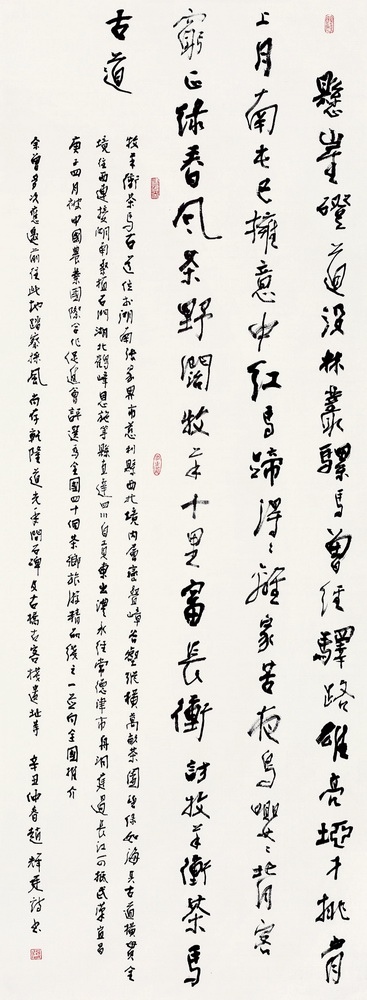 懸崖磴道没林叢騾馬曾經驛路雄亮埡才挑肩
上月南屯已擁意中紅馬蹄得得離家苦夜鳥嚶嚶背客
窮正綠春風茶野闊牧羊十里富長衝 討牧羊衝茶馬
古道
牧羊衝茶馬古道位於湖南張家界市慈利縣西北境內重巒疊嶂谷壑縱橫萬畝茶園皆綠如海其古道橫貫全
境往西連接湖南桑植石門湖北鶴峰恩施等縣直達四川自貢東出澧水往常德津市舟洞庭過長江可抵武漢宜昌
庚子四月被中國農業國際合作促進會評選為全國四十個茶鄉旅游精品綫之一並向全國推介
余曾多次應邀前往此地踏察採風尚存乾隆道光年間石碑及古橋古客棧遺址等 辛丑仲春趙輝廷詩書